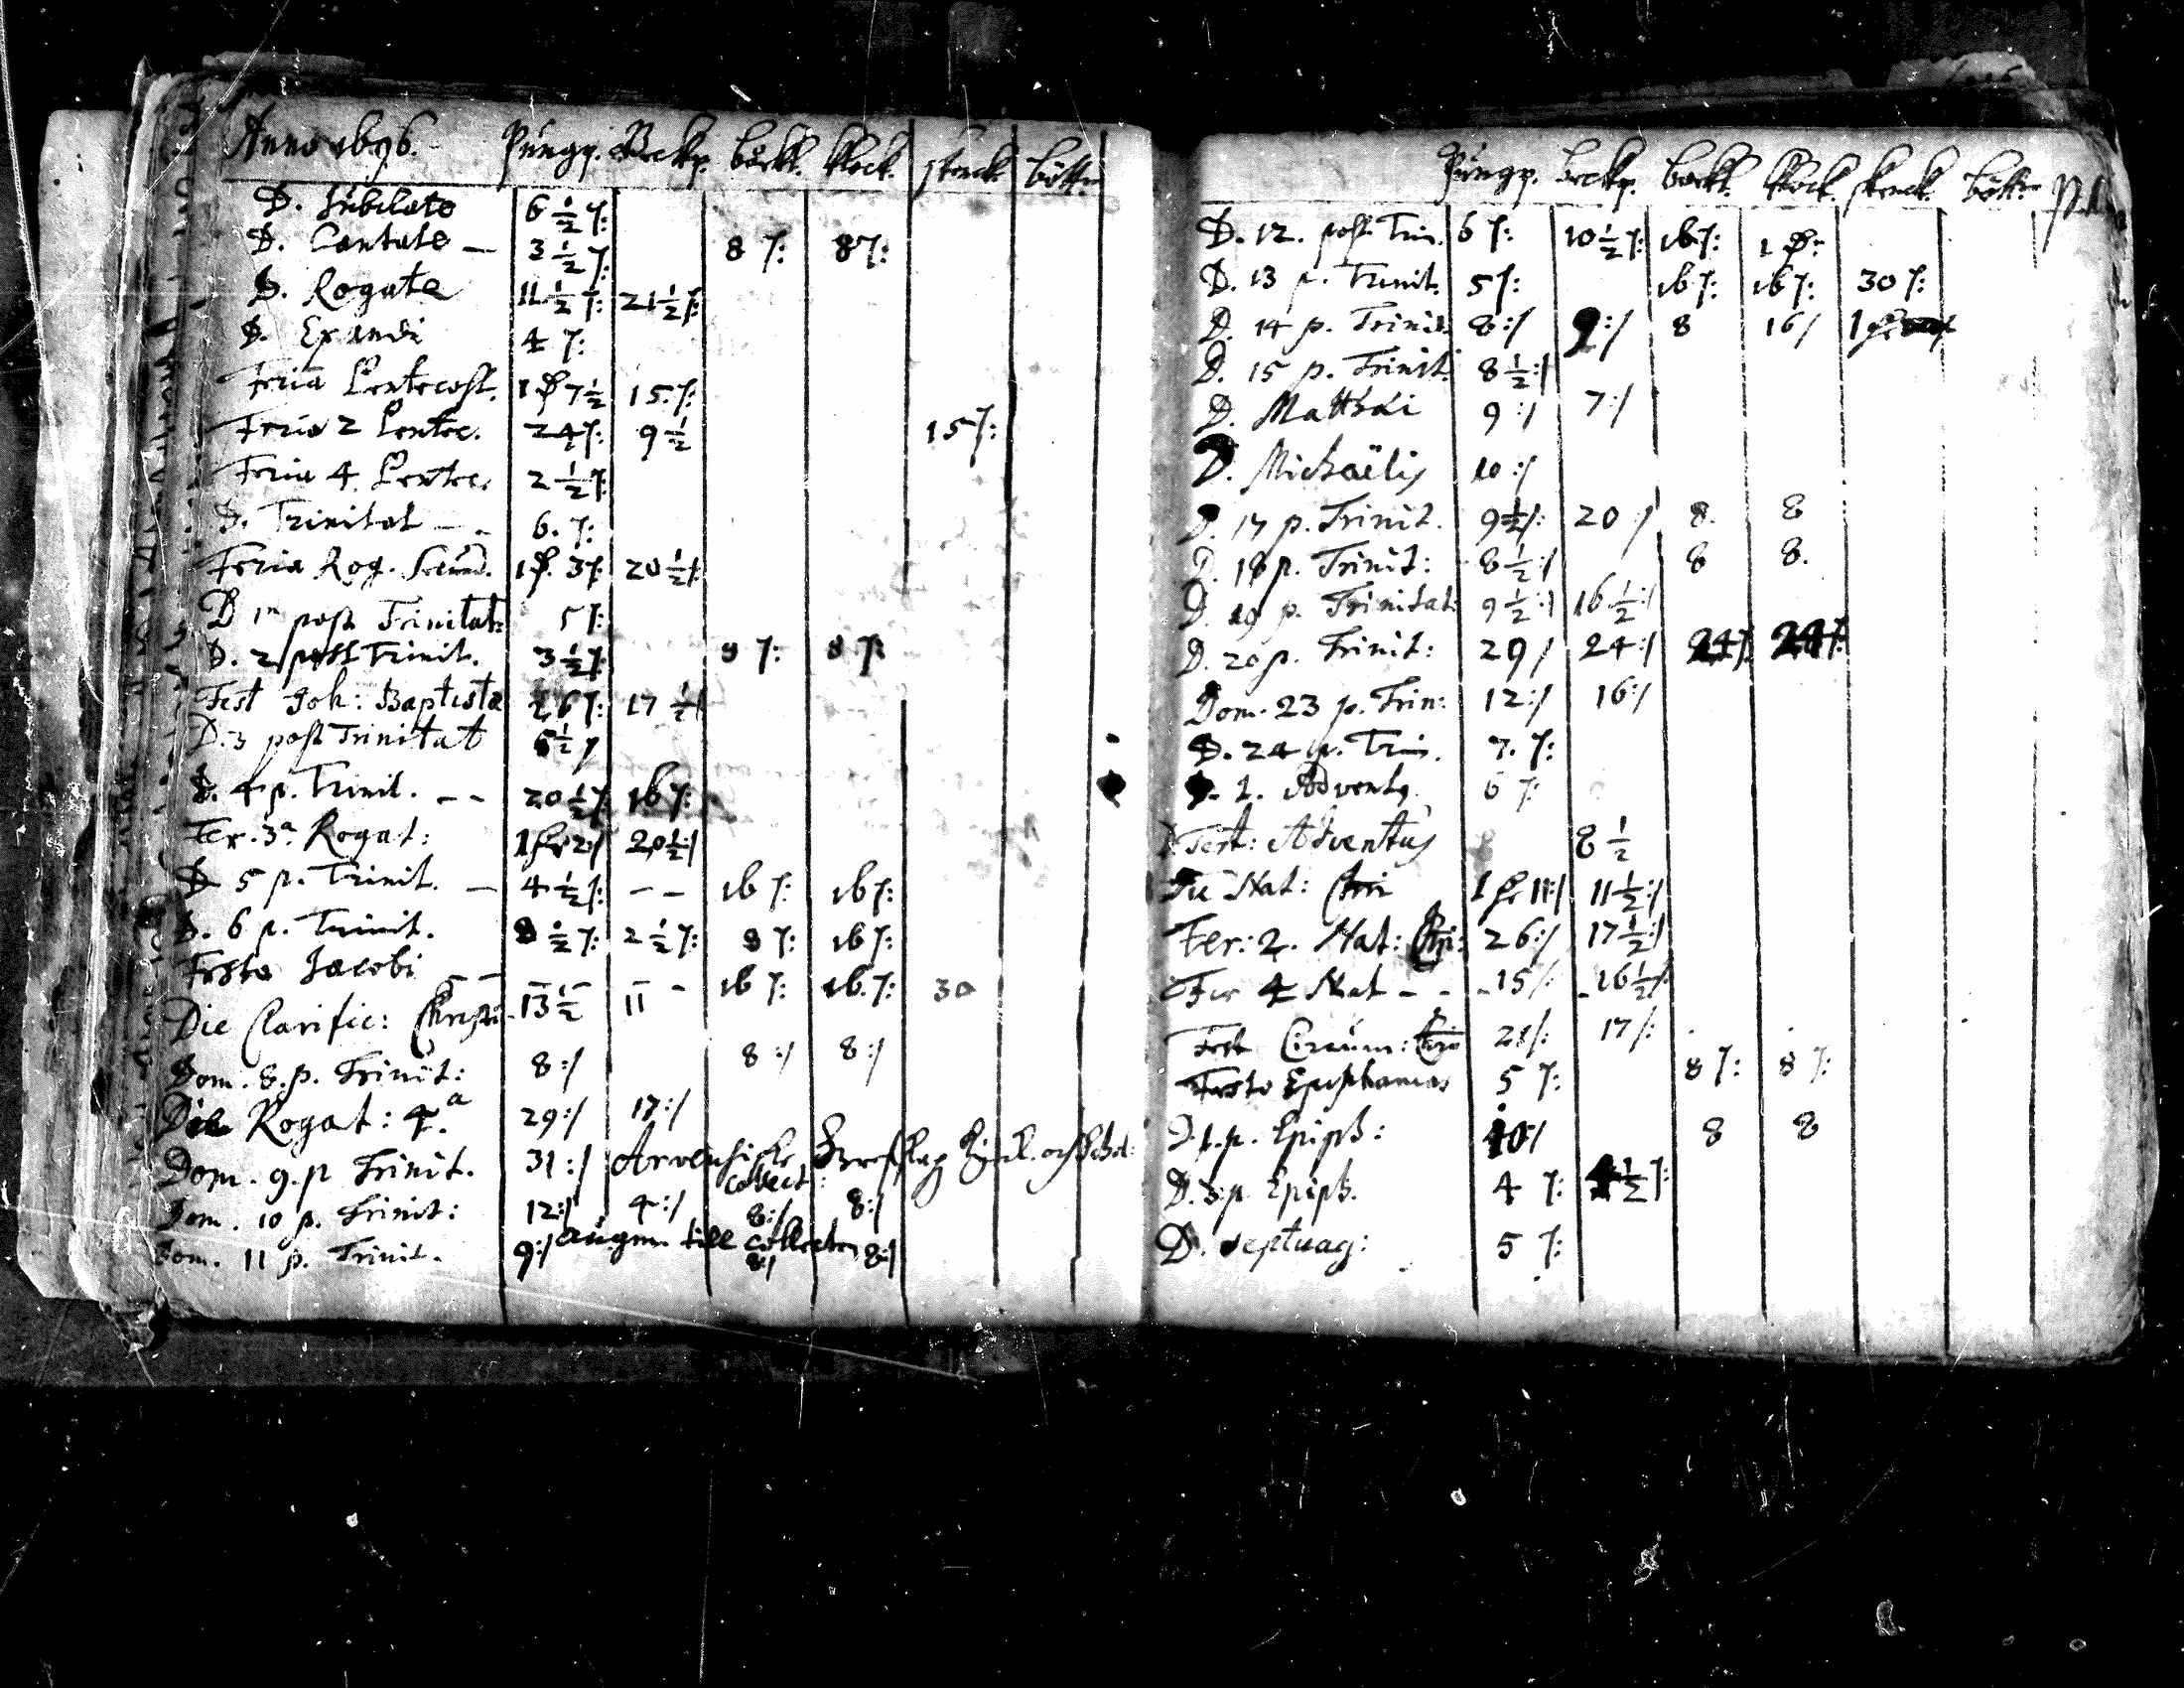 Anno 1696. Pungp. Beckp. bårkl. klock. steck. bötte
D. Jubilate 6 ½ /:
D. Cantate — 3 ½ /: 8 /: 8 /:
D. Rogate 11 ½ /: 21 ½ /:
D. Exaudi 4 /:
Feria Pentecost. 1 7 ½ 15 /:
Feria 2 Pentec. 24 /: 9 ½ 15 /:
Feria 4 Pentec. 2 ½ /:
D. Trinitat — - 6. /:
Feria Rog. Secund. 1 3 /: 20 ½ /:
D 1 post Trinitat: 5 /:
D. 2 post Trinit. 3 ½ /: 8 /: 8 /:
Fest Joh: Baptistæ 26 /: 17 ½
D. 3 post Trinitat 6 ½ /
D. 4 p. Trinit. - - 20 ½ /: 16 /:
Fer. 3a Rogat: 1 2 / 20 ½ :/
D 5 p. Trinit. — 4 ½ /: - - 16 /: 16 /:
D. 6 p. Trinit. 8 ½ /: 2 ½ /: 8 /: 16 /:
Festo Jacobi — — - 16 /: 16. /: 30
Die Clarific: Christi 13 ½ 11
Dom. 8. p. Trinit: 8 :/ 8 :/ 8 :/
Die Rogat: 4.a 29 :/ 17 :/
Dom. 9. p Trinit. 31 :/ collect
Dom. 10 p. Trinit: 12 :/ 4 :/ 8 :/ 8 :/
Dom. 11 p. Trinit. 9 :/ till collecten 8 :/ 8 :/
Pungp. beckp. barkl. klock. steck. bötte
D. 12. post Trin. 6 /: 10 ½ /: 16 /: 1
D. 13 p. Trinit. 5 /: 16 /: 16 /: 30 /:
D. 14 p. Trinit. 8 :/ 9 :/ 8 16 / 1
D. 15 p. Trinit. 8 ½ :/
D. Matthæi 9 :/ 7 :/
D. Michaëlis 10 :/
D. 17 p. Trinit. 9 ½ /: 20 / 8. 8
D. 18 p. Trinit: 8 ½ :/ 8 8.
D. 19 p. Trinitat: 9 ½ :/ 16 ½ :/
D. 20 p. Trinit: 29 / 24 :/ 24 /: 24 /:
Dom. 23 p. Trin: 12 :/ 16 :/
D. 24 p. Trin. 7. /:
D. 1. Advent 6 /:
Fest: Adventus 8 ½
Die Nat: Chri 1 11 :/ 11 ½ :/
Fer: 2. Nat: Chri: 26 :/ 17 ½ :/
Fer 4 Nat - - - 15 /: - 16 ½ /:
Fest Circum: Chri 21 /: 17 /:
Festo Epiphanias 5 /: 8 /: 8 /:
D. 1. p. Epiph: 10 / 8 8
D. 3. p. Epiph. 4 /: 4 ½ /:
D. septuag: 5 /: